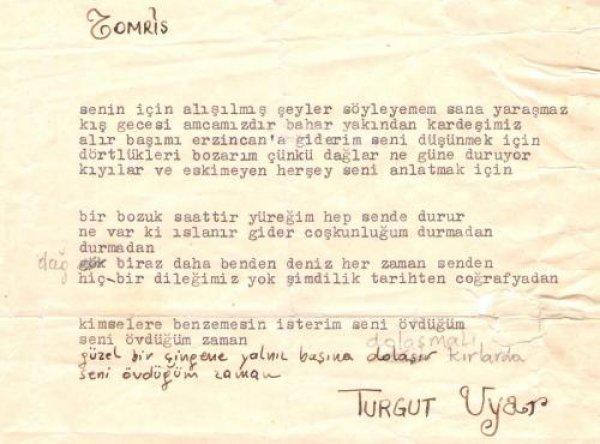 TOMRİS
senin için alışılmış şeyler söyleyemem sana yaraşmaz
kış gecesi amcamızdır bahar yakından kardeşimiz
alır başımı erzincan'a giderim seni düşünmek için
dörtlükleri bozarım çünkü dağlar ne güne duruyor
kıyılar ve eskimeyen herşey seni anlatmak için
bir bozuk saattir yüreğim hep sende durur
ne var ki ıslanır gider coşkunluğum durmadan
durmadan
dağ gök biraz daha benden deniz her zaman senden
hiç bir dileğimiz yok şimdilik tarihten coğrafyadan
kimselere benzemesin isterim seni övdüğüm
seni övdüğüm zaman
dolaşmalı
güzel bir çingene yalnız başına dolaşır kırlarda
seni övdüğüm zaman
TURGUT Uyar